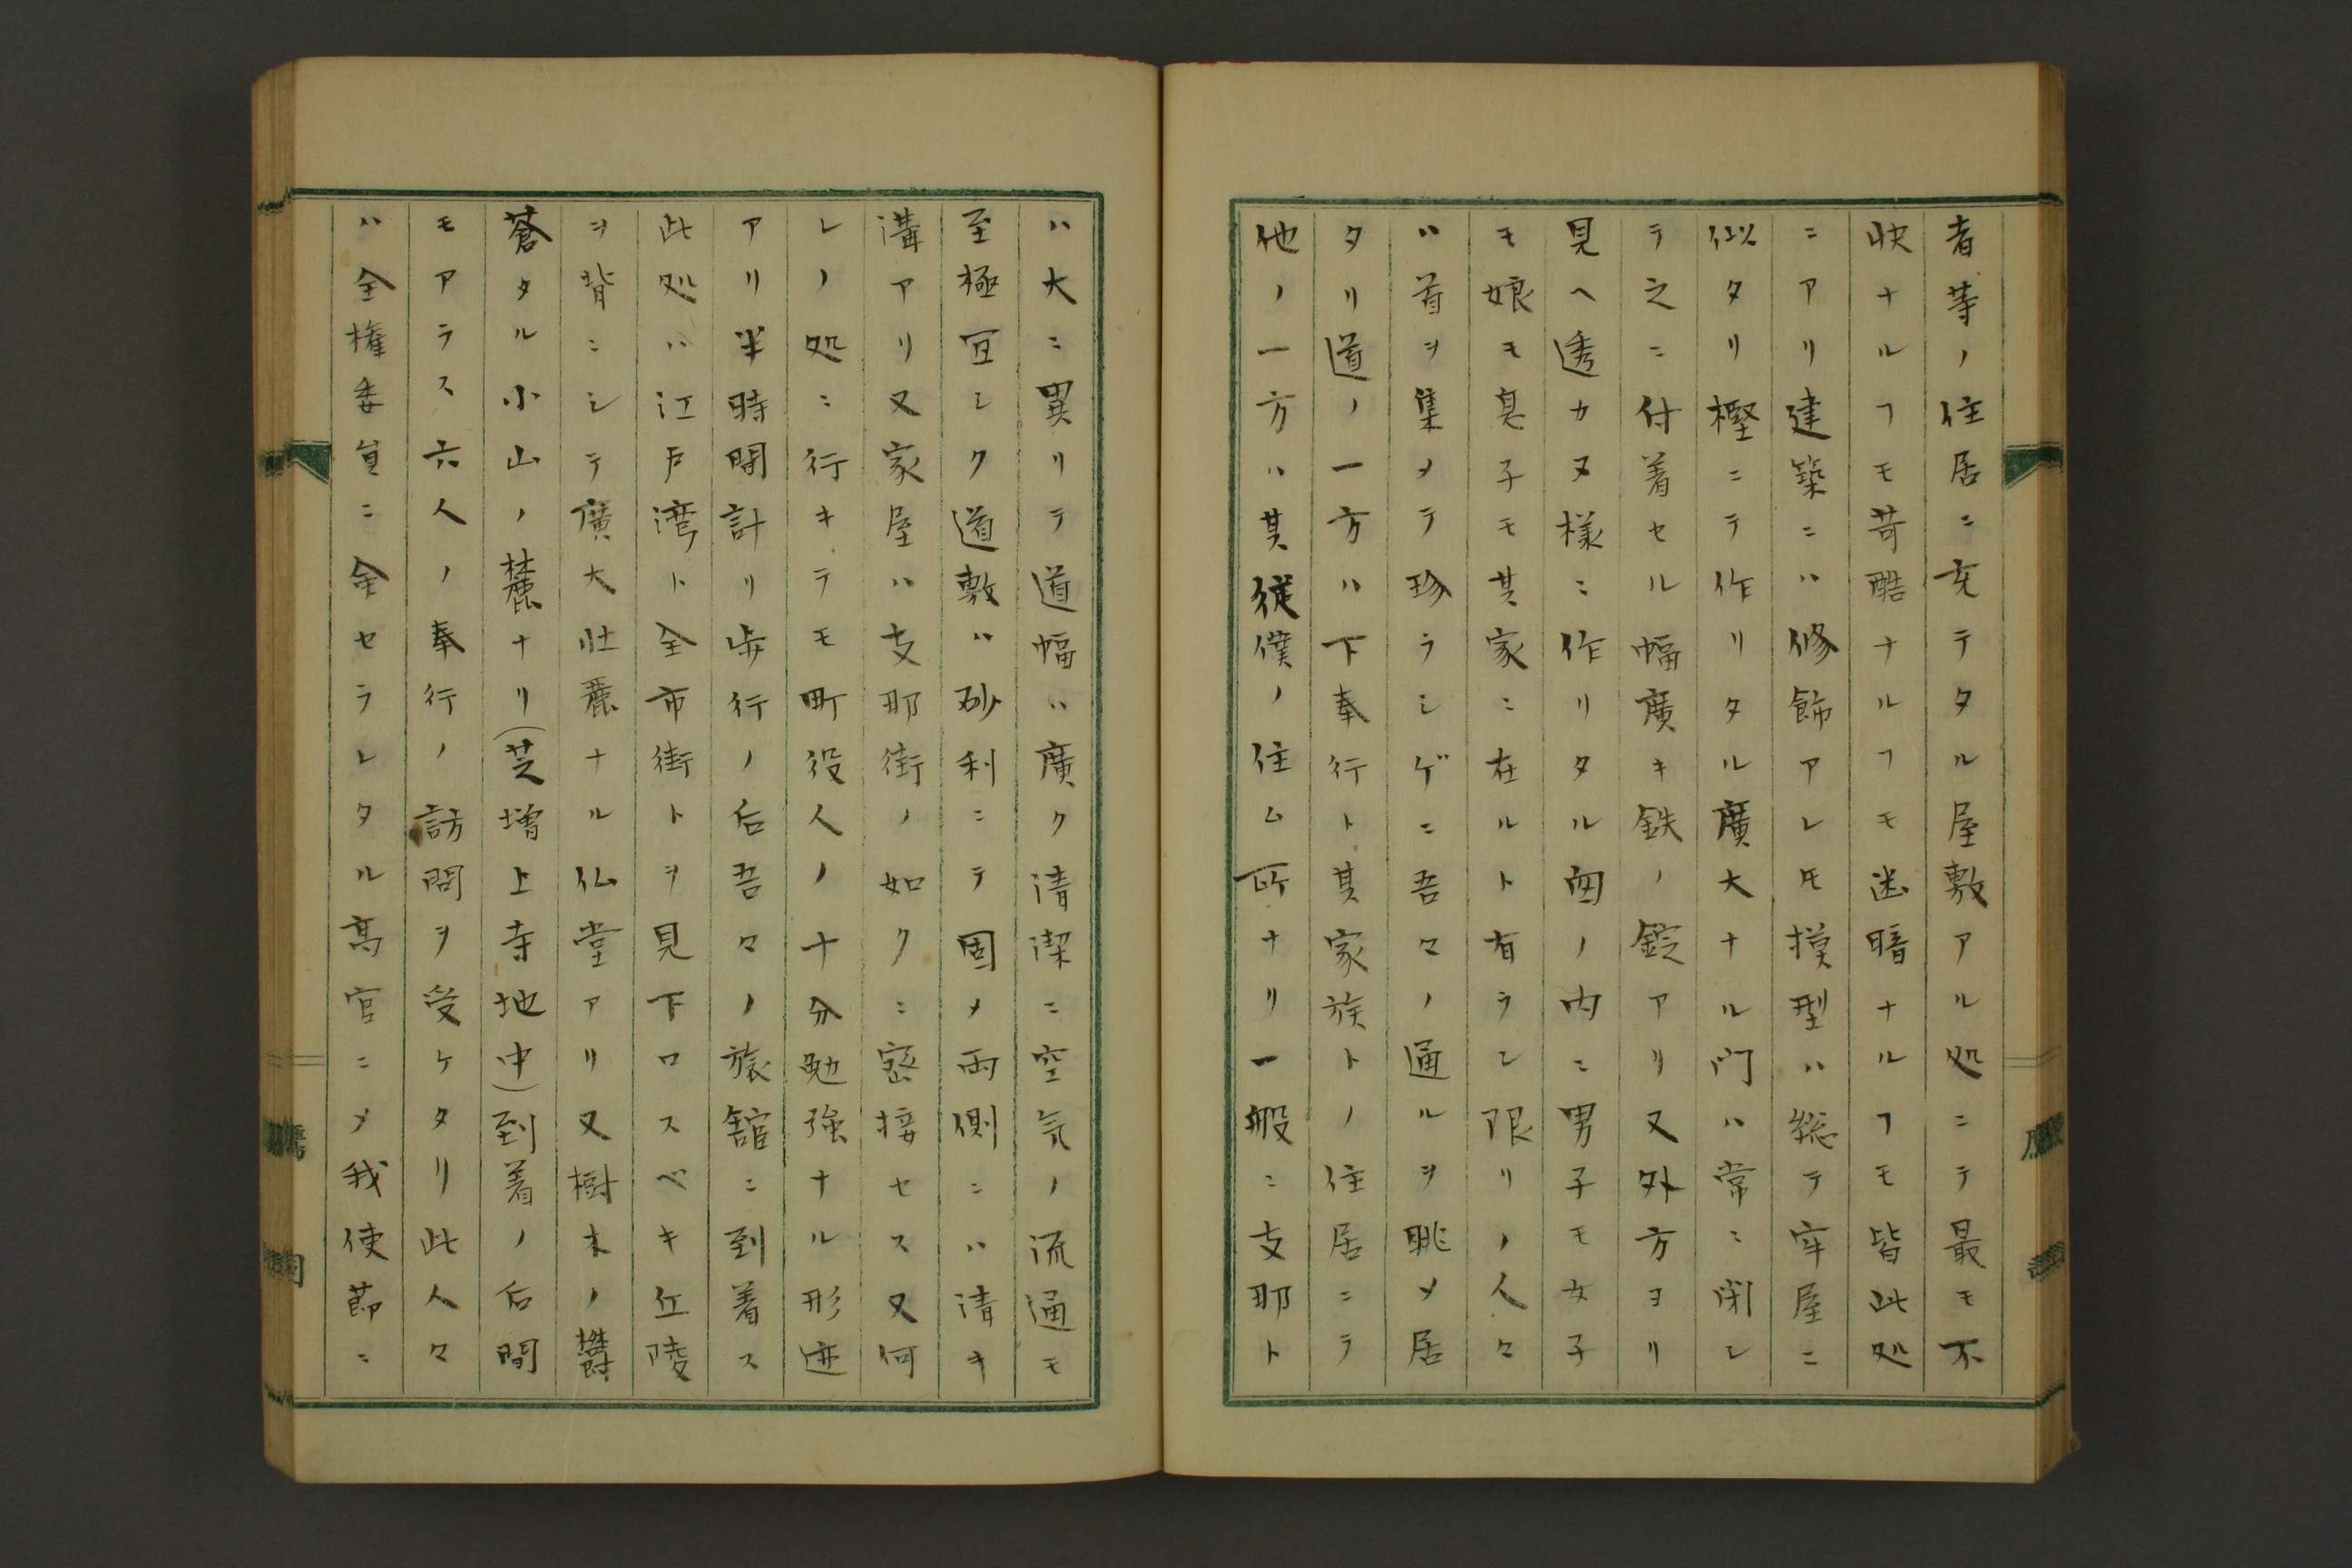 者等ノ住居ニ充テタル屋敷アル処ニテ最モ不
快ナルヿモ苛酷ナルヿモ迷暗ナルヿモ皆此処
ニアリ建築ニハ修飾アレ𪜈模型ハ総テ牢屋ニ
似タリ樫ニテ作リタル廣大ナル門ハ常ニ閉シ
テ之ニ付着セル幅廣キ鉄ノ錠アリ又外方ヨリ
見ヘ透カヌ様ニ作リタルノ内ニ男子モ女子
モ娘モ息子モ其家ニ在ルト有ラン限リノ人々
ハ首ヲ集メテ珍ラシゲニ吾々ノ通ルヲ眺メ居
タリ道ノ一方ハ下奉行ト其家族トノ住居ニテ
他ノ一方ハ其従僕ノ住ム所ナリ一般ニ支耶ト
ハ大ニ異リテ道幅ハ廣ク清潔ニ空気ノ流通モ
至極宜シク道敷ハ砂利ニテ固メ両側ニハ清キ
溝アリ又家屋ハ支耶街ノ如クニ密接セス又何
レノ処ニ行キテモ町役人ノ十分勉強ナル形迹
アリ半時間計リ歩行ノ后吾々ノ旅舘ニ到着ス
此処ハ江戸湾ト全市街トヲ見下ロスベキ丘陵
ヲ背ニシテ廣大壮麗ナル仏堂アリ又樹木ノ欝
蒼タル小山ノ麓ナリ(芝増上寺地中)到着ノ后間
モアラス六人ノ奉行ノ訪問ヲ受ケタリ此人々
ハ全権委員ニ命セラレタル髙官ニメ我使節ニ